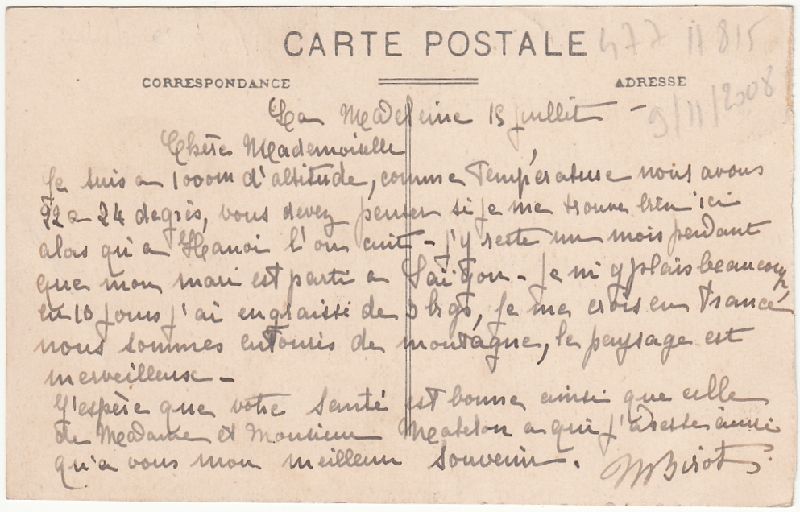 CARTE POSTALE
477 11 815
CORRESPONDANCE
ADRESSE
9/11/2008
La Madeleine 15 juillet -
Chère Mademoiselle
Je suis a 1000m d'altitude, comme température nous avons
22 a 24 degrés, vous devez penser si je me trouve bien ici
alors qu'a Hanoi l'on cuit - j'y reste un mois pendant
que mon mari est parti a Saïgon - je m'y plais beaucoup,
en 10 jours j'ai engraissé de 3 kgs, je me crois en France,
nous sommes entourés de montagne, le paysage est
merveilleux -
J'espère que votre santé est bonne ainsi que celle
de Madame et Monsieur a qui j'adresse ainsi
qu'a vous mon meilleur souvenir.